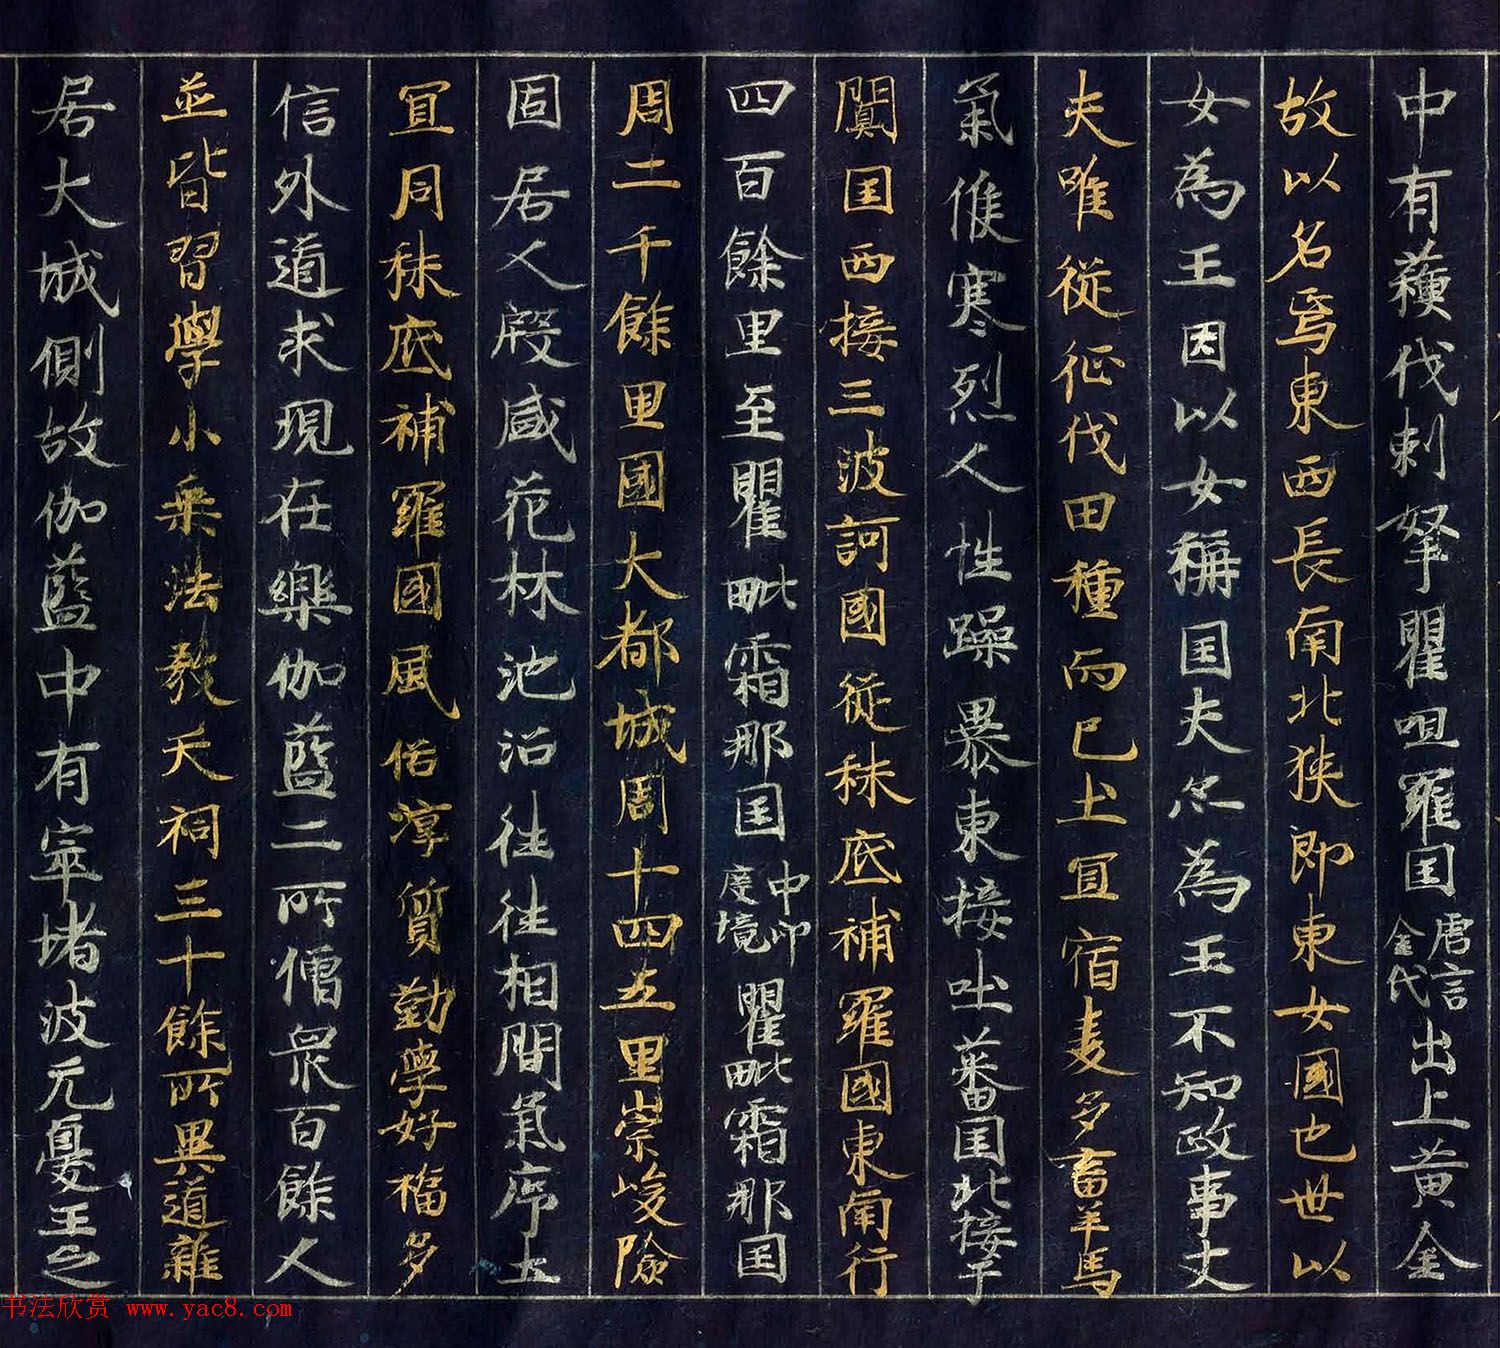 中有蘈伐剌拏瞿呾羅国唐言金代出上黄金
故以名焉東西長南北狭即東女國也世以
女為王因以女稱国夫尒為王不知政事丈
夫唯從征伐田種而已土冝宿麦多畜羊馬
氣候寒烈人性躁暴東接吐蕃国北接于
闐国西接三波訶國從秣底補羅國東南行
四百餘里至瞿毗霜那国中印度境瞿毗霜那国
周二千餘里國大都城周十四五里崇峻險
固居人殷盛花林池沼往往相間氣序土
冝同秣底補羅國風俗淳質勤學好福多
信外道求現在樂伽藍二所僧眾百餘人
並皆習學小乘法教天祠三十餘所異道雜
居大城側故伽藍中有窣堵波无憂王之
书法欣赏 www.yac8.com